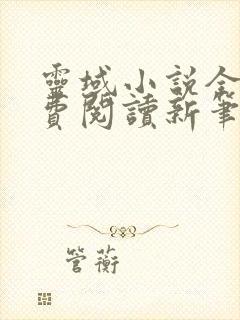 靈域小說全
費閱讀新筆
管蘅